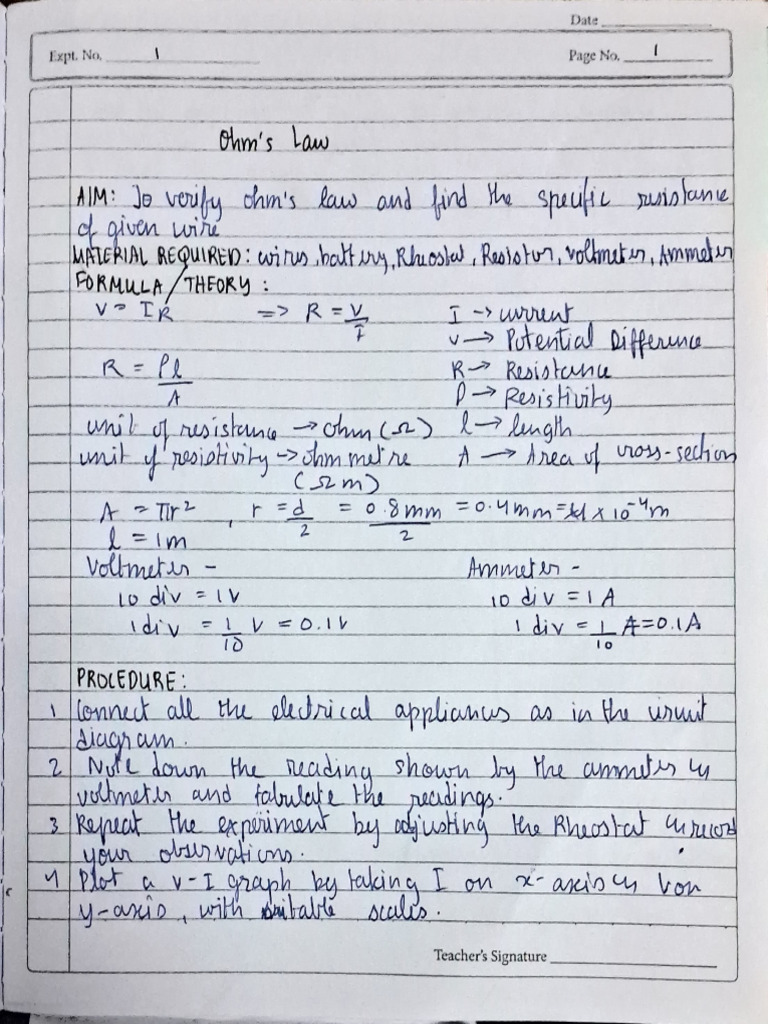 Date
Expt. No. 1
Page No. 1
Ohm's Law
AIM: To verify ohm's law and find the specific resistance
of given wire
MATERIAL REQUIRED: wires, battery, Rheostat, Resistor, voltmeter, Ammeter
FORMULA/THEORY:
V = IR => R = V/I I → current
V → Potential Difference
R = ρl/A R → Resistance
ρ → Resistivity
unit of resistance → ohm (Ω) l → length
unit of resistivity → ohm metre A → Area of cross-section
(Ω m)
A = πr², r = d/2 = 0.8mm/2 = 0.4mm = 4 × 10⁻⁴m
l = 1m
Voltmeter - Ammeter -
10 div = 1V 10 div = 1 A
1 div = 1/10 V = 0.1V 1 div = 1/10 A = 0.1A
PROCEDURE:
1 Connect all the electrical appliances as in the circuit
diagram.
2 Note down the reading shown by the ammeter &
voltmeter and tabulate the readings.
3 Repeat the experiment by adjusting the Rheostat & record
your observations.
4 Plot a V-I graph by taking I on x-axis & V on
y-axis, with suitable scales.
Teacher's Signature